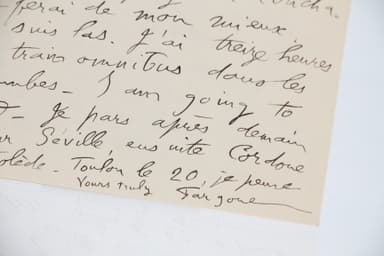 ferai de mon mieux.
suis las. J'ai treize heures
train omnibus dans les
mbes - I am going to
- Je pars après demain
Séville, ensuite Cordoue
olède. Toulon le 20, je pense
Yours truly Fargoue